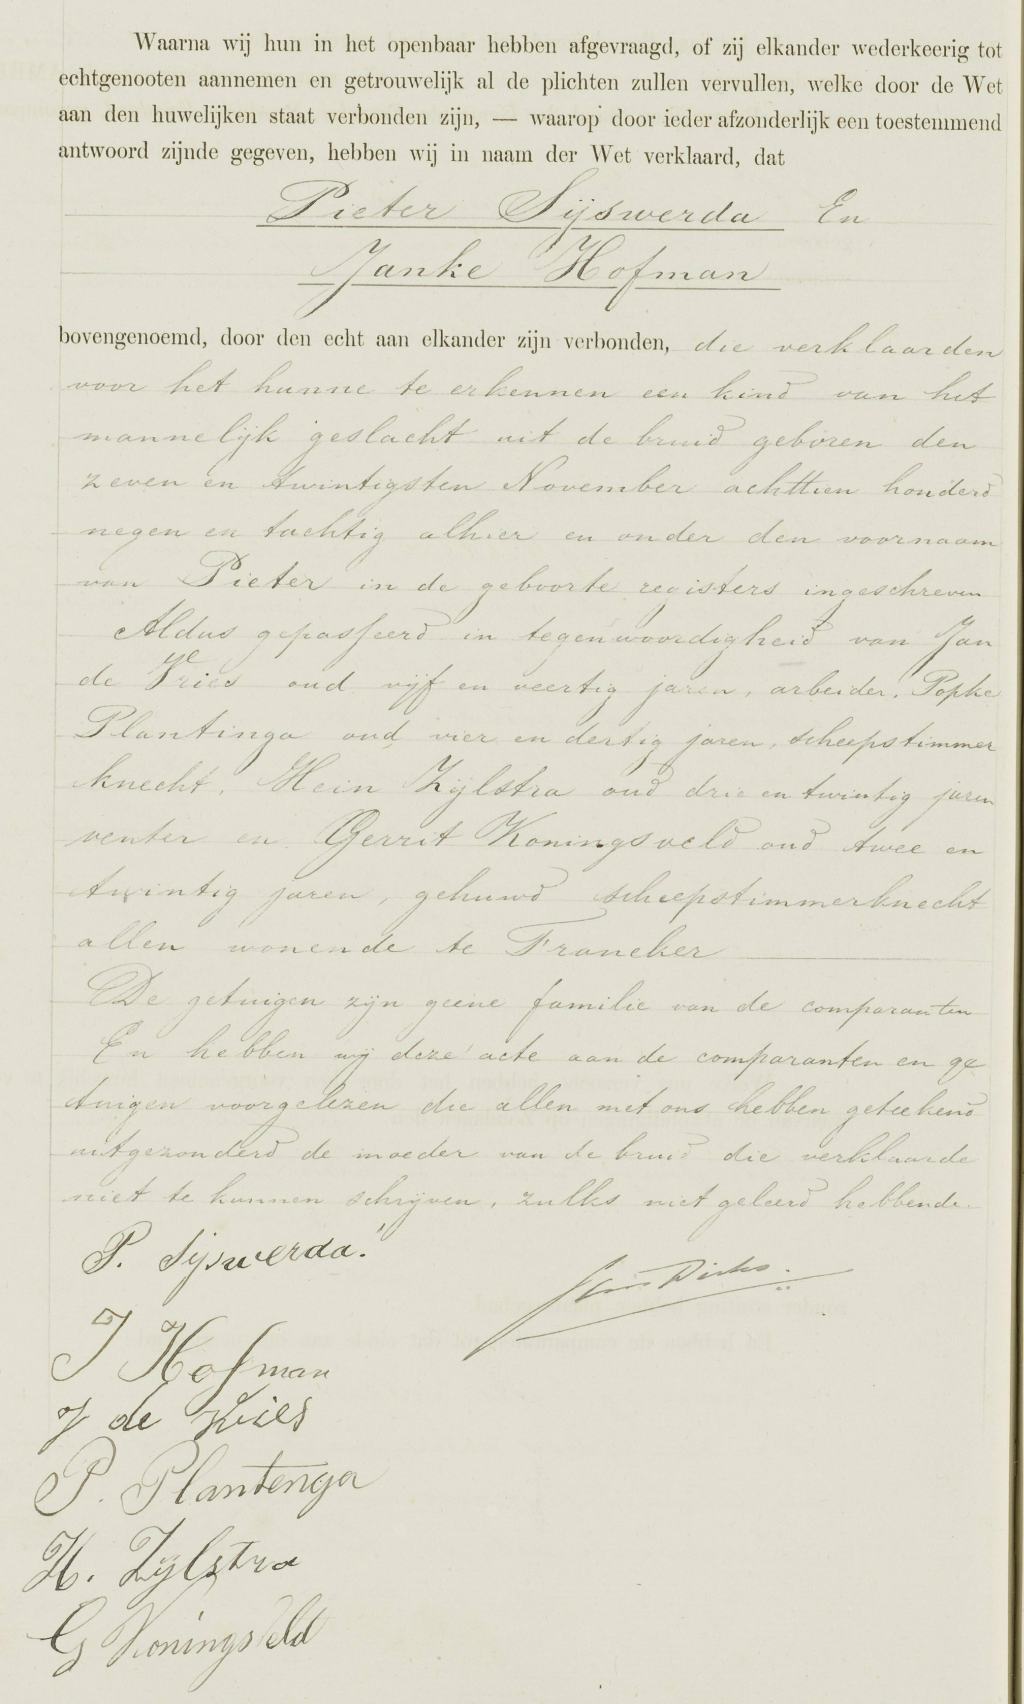 Waarna wij hun in het openbaar hebben afgevraagd, of zij elkander wederkeerig tot
echtgenooten aannemen en getrouwelijk al de plichten zullen vervullen, welke door de Wet
aan den huwelijken staat verbonden zijn, — waarop door ieder afzonderlijk een toestemmend
antwoord zijnde gegeven, hebben wij in naam der Wet verklaard, dat
Pieter Sijswerda En
Janke Hofman
bovengenoemd, door den echt aan elkander zijn verbonden, die verklaarden
voor het hunne te erkennen een kind van het
mannelijk geslacht uit de bruid geboren den
zeven en twintigsten November achttien honderd
negen en tachtig alhier en onder den voornaam
van Pieter in de geboorte registers ingeschreven
Aldus gepasseerd in tegenwoordigheid van Jan
de Vries oud vijf en veertig jaren, arbeider, Popke
Plantinga oud vier en dertig jaren, scheepstimmer
knecht, Hein Zijlstra oud drie en twintig jaren
venter en Gerrit Koningsveld oud twee en
twintig jaren, gehuwd scheepstimmerknecht
allen wonende te Franeker
De getuigen zijn geene familie van de comparanten
En hebben wij deze acte aan de comparanten en ge
tuigen voorgelezen die allen met ons hebben geteekend
uitgezonderd de moeder van de bruid die verklaarde
niet te kunnen schrijven, zulks niet geleerd hebbende.
P. Sijswerda.
Dirks.
J Hofman
J de Vries
P. Plantenga
H. Zijlstra
G Koningsveld